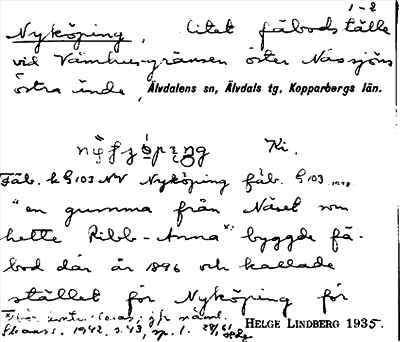 1-2
Nyköping, litet fäbodställe
vid Våmhusgränsen öster Nässjöns
östra ände, Älvdalens sn, Älvdals tg, Kopparbergs län.
Ki.
Fäb. k G103 NV Nyköping fäb. G103
"en gumma från Näset som
hette Ribb-Anna x) byggde fä-
bod där år 1896 och kallade
stället för Nyköping för
Skans. 1942, s. 43, sp. 1. 28/61
HELGE LINDBERG 1935.